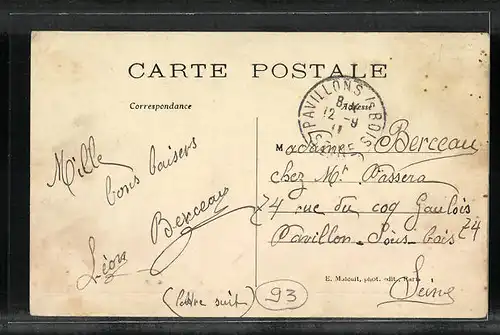 CARTE POSTALE
Correspondance
Adresse
PAVILLONS S BOIS
8
12 - 9
11
Mille
bons baisers
Léon Berceau
(lettre suit)
93
Madame Berceau
chez Mr. Passera
74 rue du coq Gaulois 74
Pavillon-Sous-bois
Seine
phot. édit., Paris